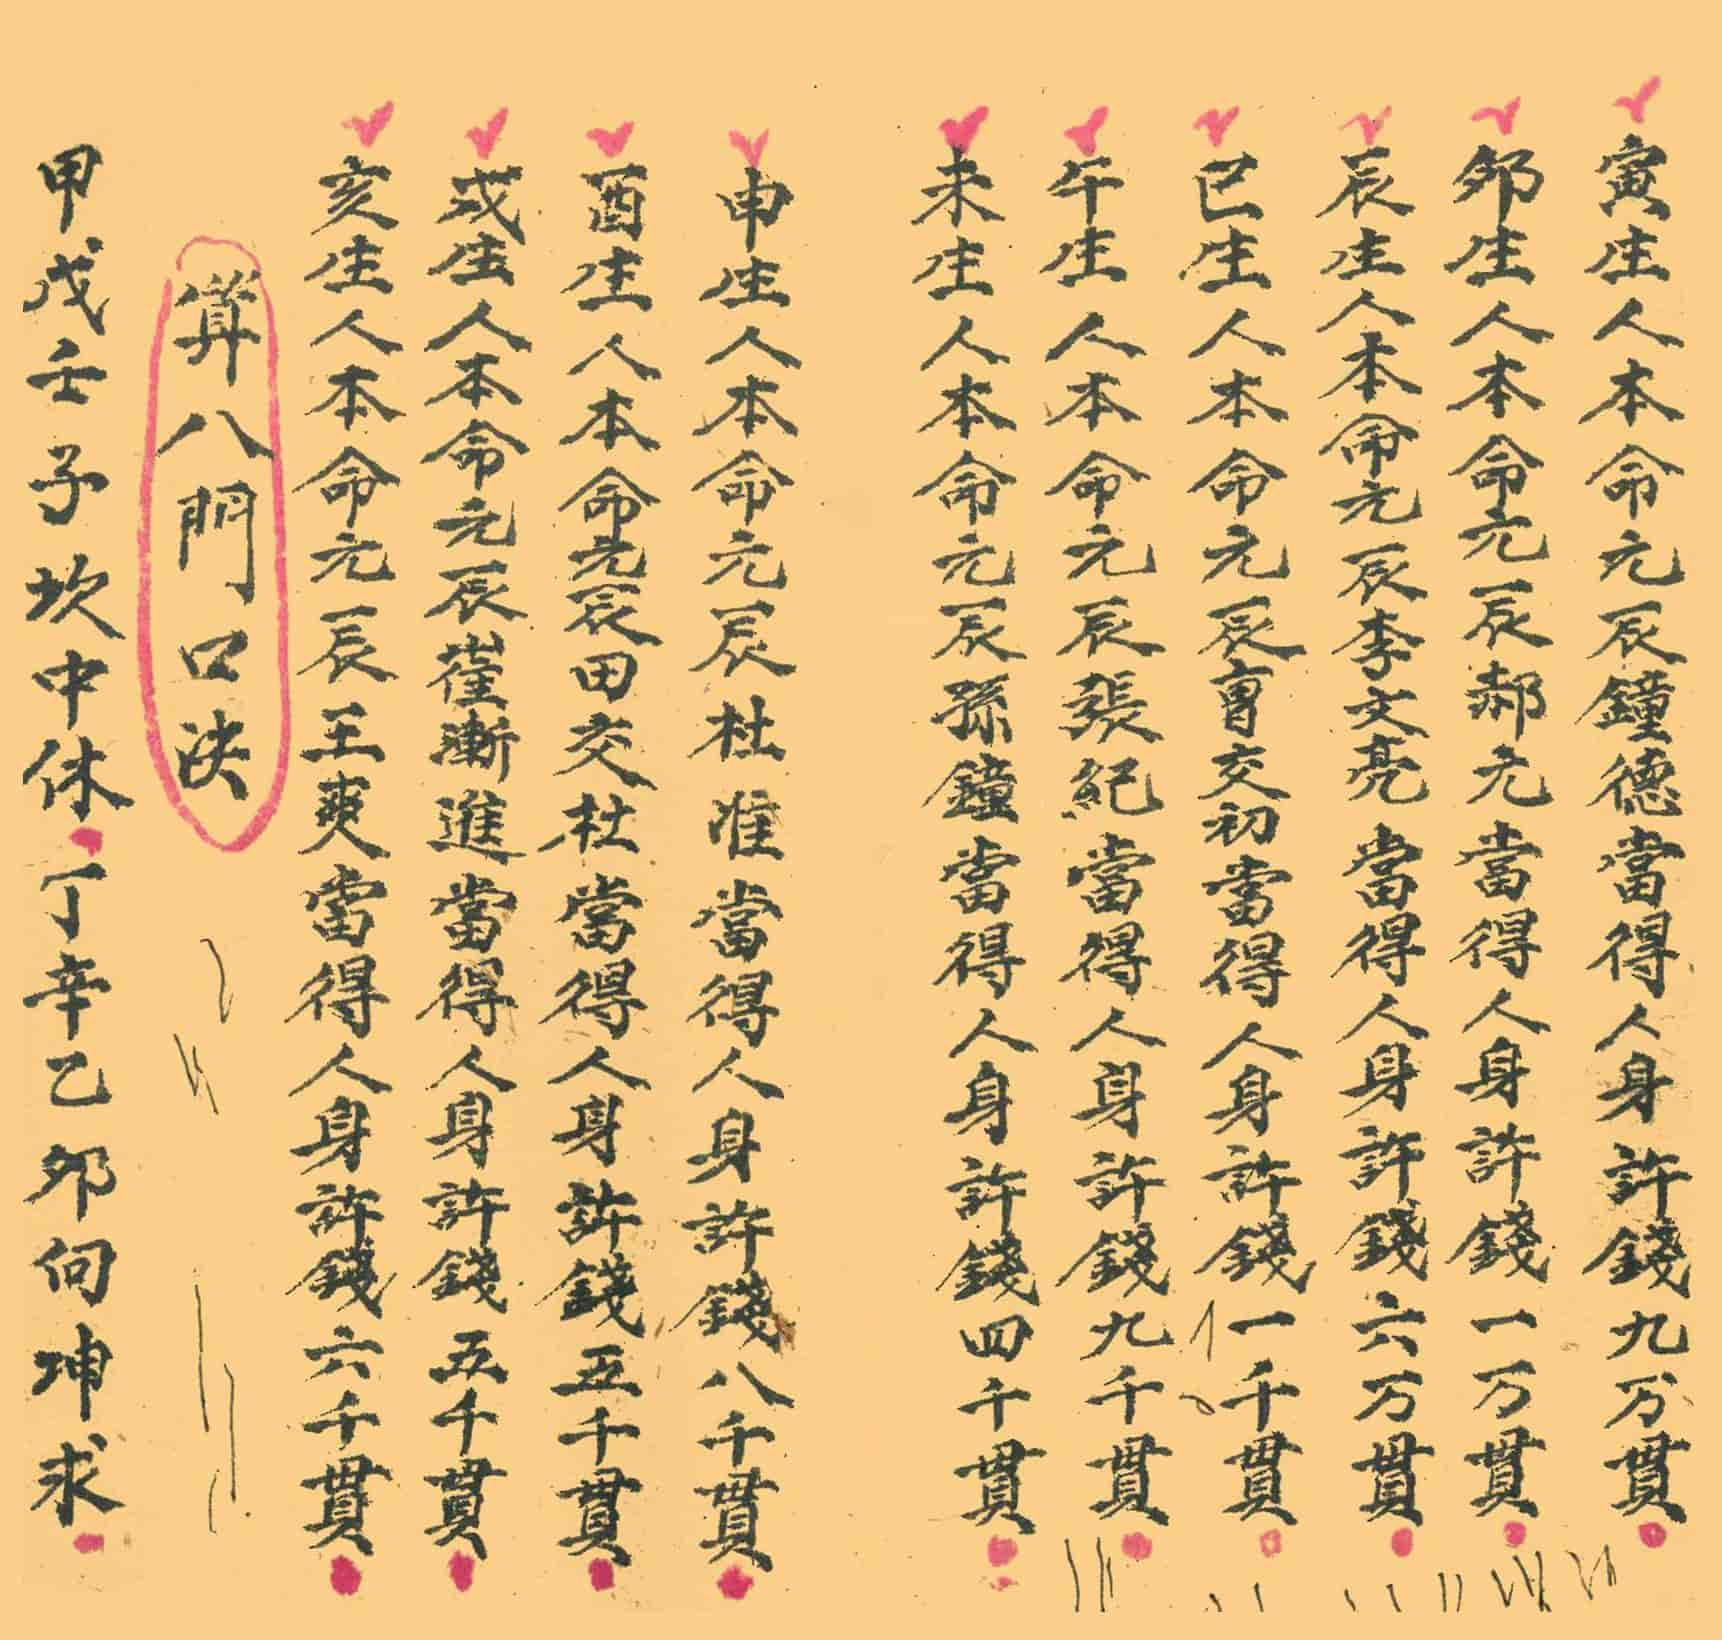 寅生人本命元辰鐘德當得人身許錢九万貫
夘生人本命元辰郝元當得人身許錢一万貫
辰生人本命元辰李文亮當得人身許錢六万貫
巳生人本命元辰曺交初當得人身許錢一千貫
午生人本命元辰張紀當得人身許錢九千貫
未生人本命元辰孫鐘當得人身許錢四千貫
申生人本命元辰杜准當得人身許錢八千貫
酉生人本命元辰田交杜當得人身許錢五千貫
戌生人本命元辰崔漸進當得人身許錢五千貫
亥生人本命元辰王爽當得人身許錢六千貫
算八門口決
甲戊壬子坎中休丁辛乙夘向坤求